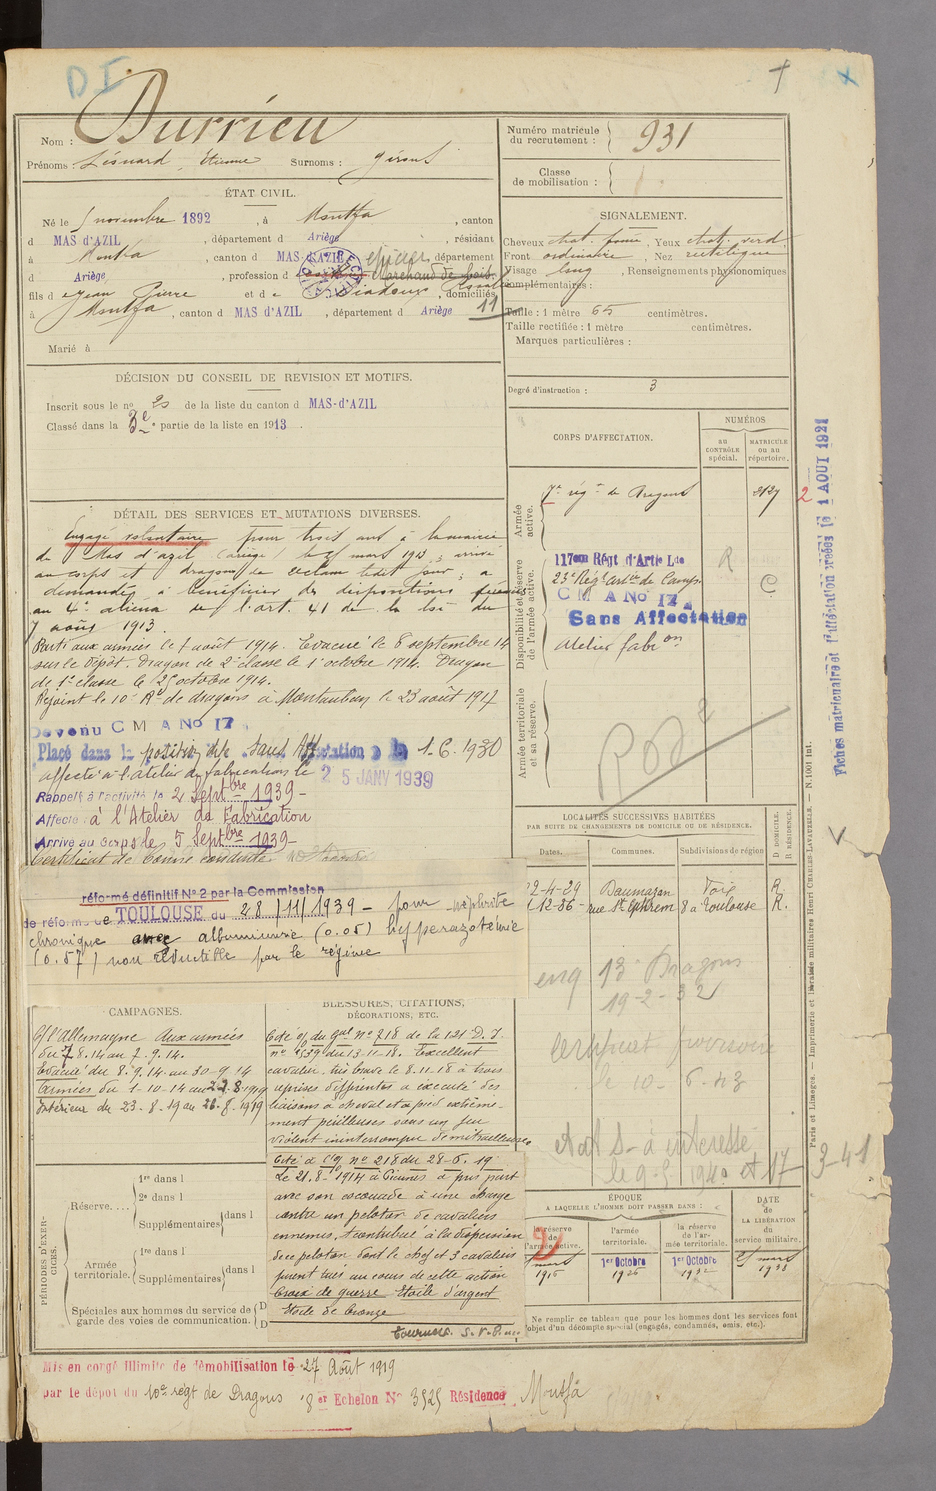 D I
Durrieu
Nom :
Prénoms : Léonard, Étienne Surnoms :
Numéro matricule du recrutement : 931
Classe de mobilisation :
ÉTAT CIVIL.
Né le 5 novembre 1892, à Montfa, canton
d MAS d'AZIL, département d Ariège, résidant
à Montfa, canton d MAS-d'AZIL, département
d Ariège, profession d épicier Marchand de bois
fils d e Jean Pierre et d e Diadoux, domiciliés
à Montfa, canton d MAS d'AZIL, département d Ariège 11
Marié à
SIGNALEMENT.
Cheveux chat. foncé, Yeux chat. verd.
Front ordinaire, Nez rectiligne
Visage long, Renseignements physionomiques
complémentaires :
Taille : 1 mètre 65 centimètres.
Taille rectifiée : 1 mètre centimètres.
Marques particulières :
Degré d'instruction : 3
DÉCISION DU CONSEIL DE REVISION ET MOTIFS.
Inscrit sous le n° 20 de la liste du canton d MAS-d'AZIL
Classé dans la 3e partie de la liste en 1913.
CORPS D'AFFECTATION.
NUMÉROS
au CONTRÔLE spécial.
MATRICULE ou au répertoire.
Armée active.
7e régt de Dragons 2
Disponibilité et réserve de l'armée active.
117eme Régt d'Artie Lde R
23e Régt art'ie de Camp. C
C M A No 17
Sans Affectation
Atelier fabron
Armée territoriale et sa réserve.
DÉTAIL DES SERVICES ET MUTATIONS DIVERSES.
Engagé volontaire pour trois ans à la mairie
du Mas d'azil (ariège) le mars 1913; arrivé
au corps et dragon de 2e classe ledit jour; a
demandé à bénéficier des dispositions
au 4e alinéa de l'art. 41 de la loi du
7 août 1913.
Parti aux armées le 7 août 1914. Evacué le 8 septembre 14
sur le dépôt. Dragon de 2e classe le 1er octobre 1914. Dragon
de 1e classe le 25 octobre 1914.
Rejoint le 10e Rt de dragons à Montauban le 23 août 1917
Devenu C M A No 17
Placé dans la position dite sans Affectation le 1.6.1930
affecté à l'atelier de fabrications le 25 JANV 1939
Rappelé à l'activité le 2 Septbre 1939 -
Affecté à l'Atelier de Fabrication
Arrivé au Corps le 5 Septbre 1939 -
Certificat de bonne conduite
réformé définitif N° 2 par la Commission
de réforme de TOULOUSE du 28/11/1939 - pour néphrite
chronique avec albuminurie (0.05) hyperazotémie
(0.57) non réductible par le régime
LOCALITÉS SUCCESSIVES HABITÉES
PAR SUITE DE CHANGEMENTS DE DOMICILE OU DE RÉSIDENCE.
Dates. Communes. Subdivisions de région D DOMICILE. R RÉSIDENCE.
12-4-29 Daumazan Foix R
12-36 - rue St Ephrem 8 à Toulouse R.
eng 13e Dragons
19-2-32
Certificat provisoire
le 10-6-43
etat S- à intéressé
le 9-5 1940 et 17-3-41
CAMPAGNES.
C/ l'Allemagne Aux armées
du 7.8.14 au 7.9.14.
Evacué du 8.9.14 au 30-9.14
Armées du 1-10-14 au 22.8.1919
Intérieur du 23-8-19 au 26-8-1919
BLESSURES, CITATIONS,
DÉCORATIONS, ETC.
Cité o/ du Gal n° 218 de la 121e D.I.
n° 539 du 13-11-18. Excellent
cavalier, très brave le 8.11.18 à trois
reprises différentes a exécuté des
liaisons à cheval et à pied extrême-
ment périlleuses sous un feu
violent ininterrompu de mitrailleuses
Cité à l'o/ n° 218 du 28-6.19
Le 21.8.1914 à a pris part
avec son escouade à une charge
contre un peloton de cavaliers
ennemis, a contribué à la dispersion
de ce peloton dont le chef et 3 cavaliers
furent tués au cours de cette action
Croix de guerre Etoile d'argent
Etoile de bronze
Tournez S.V.P.
PÉRIODES D'EXERCICES.
Réserve....
1re dans l
2e dans l
Supplémentaires dans l
Armée territoriale.
1re dans l
Supplémentaires dans l
Spéciales aux hommes du service de garde des voies de communication. D D
ÉPOQUE
A LAQUELLE L'HOMME DOIT PASSER DANS :
la réserve de l'armée active.
l'armée territoriale.
la réserve de l'armée territoriale.
DATE DE LA LIBÉRATION du service militaire.
mars 1916
1er Octobre 1926
1er Octobre 1932
mars 1938
Ne remplir ce tableau que pour les hommes dont les services font
l'objet d'un décompte spécial (engagés, condamnés, omis, etc.).
Mis en congé illimité de démobilisation le 27 Août 1919
par le dépôt du 10e régt de Dragons 8er Echelon N° 3525 Résidence Montfa
Fiches matriculaire et d'affectation créées le 1 AOUT 1921
Paris et Limoges. — Imprimerie et librairie militaires Henri CHARLES-LAVAUZELLE. — N. 1001 int.